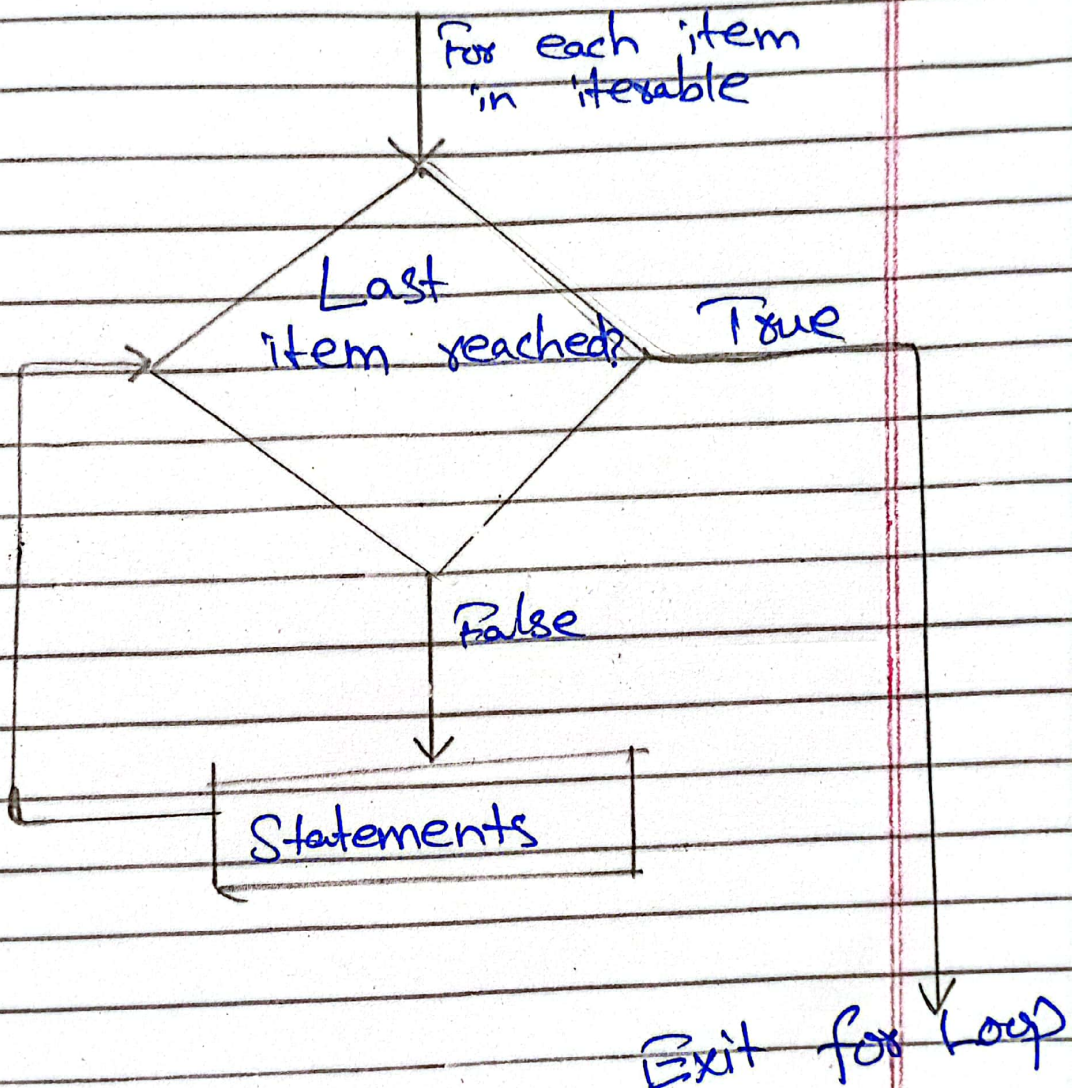 For each item
in iterable
Last
item reached?
True
False
Statements
Exit for Loop